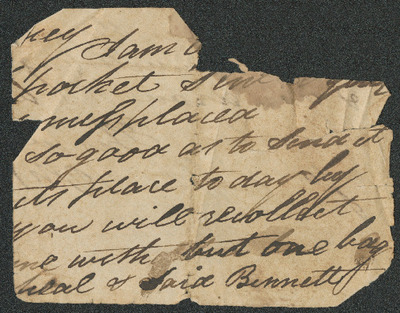 key I am
pocket
missplaced
so good as to send it
its place to day by
you will recollect
me with but one bag
meal & said Bennett